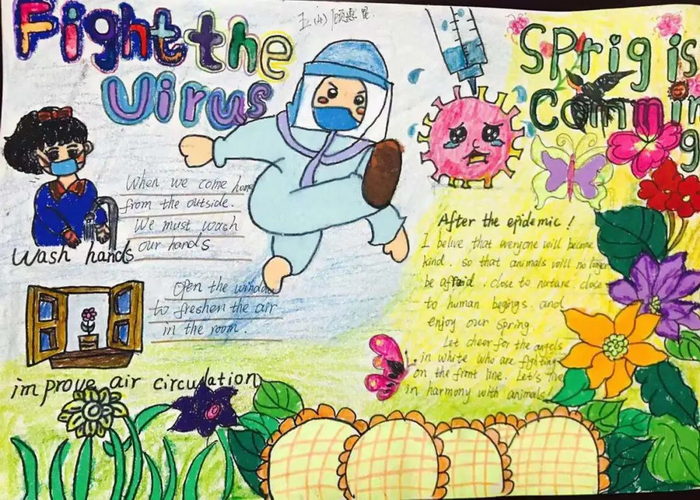 Fight the
Virus
五(4)
Sprig is
Coming
When we come home
from the outside.
We must wash
our hands
Wash hands
Open the window
to freshen the air
in the room.
improve air circulation
After the epidemic!
I belive that everyone will become
kind. so that animals will no longer
be affraid. close to nature. close
to human begings and
enjoy our spring
Let cheer for the angels
in white who are fighting
on the front line. Let's live
in harmony with animals